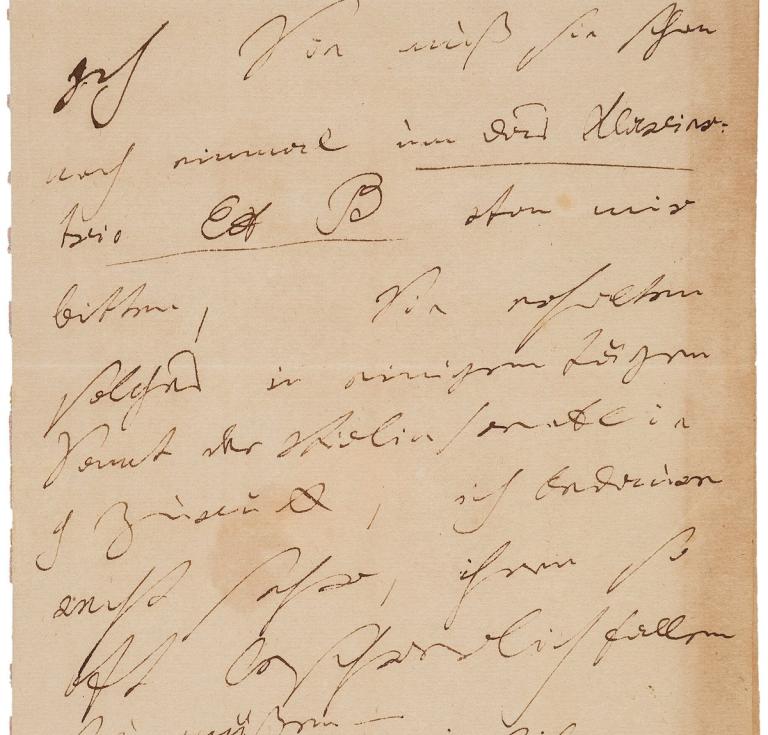 ich muß sie schon
noch einmal um das Klawier-
trio Ex B von mir
bitten, Sie erhalten
solches in einigen tägen
Samt der Violin sonate in
g Zurück, ich bedaure
recht sehr, ihnen so
oft beschwerlich fallen
zu müßen —